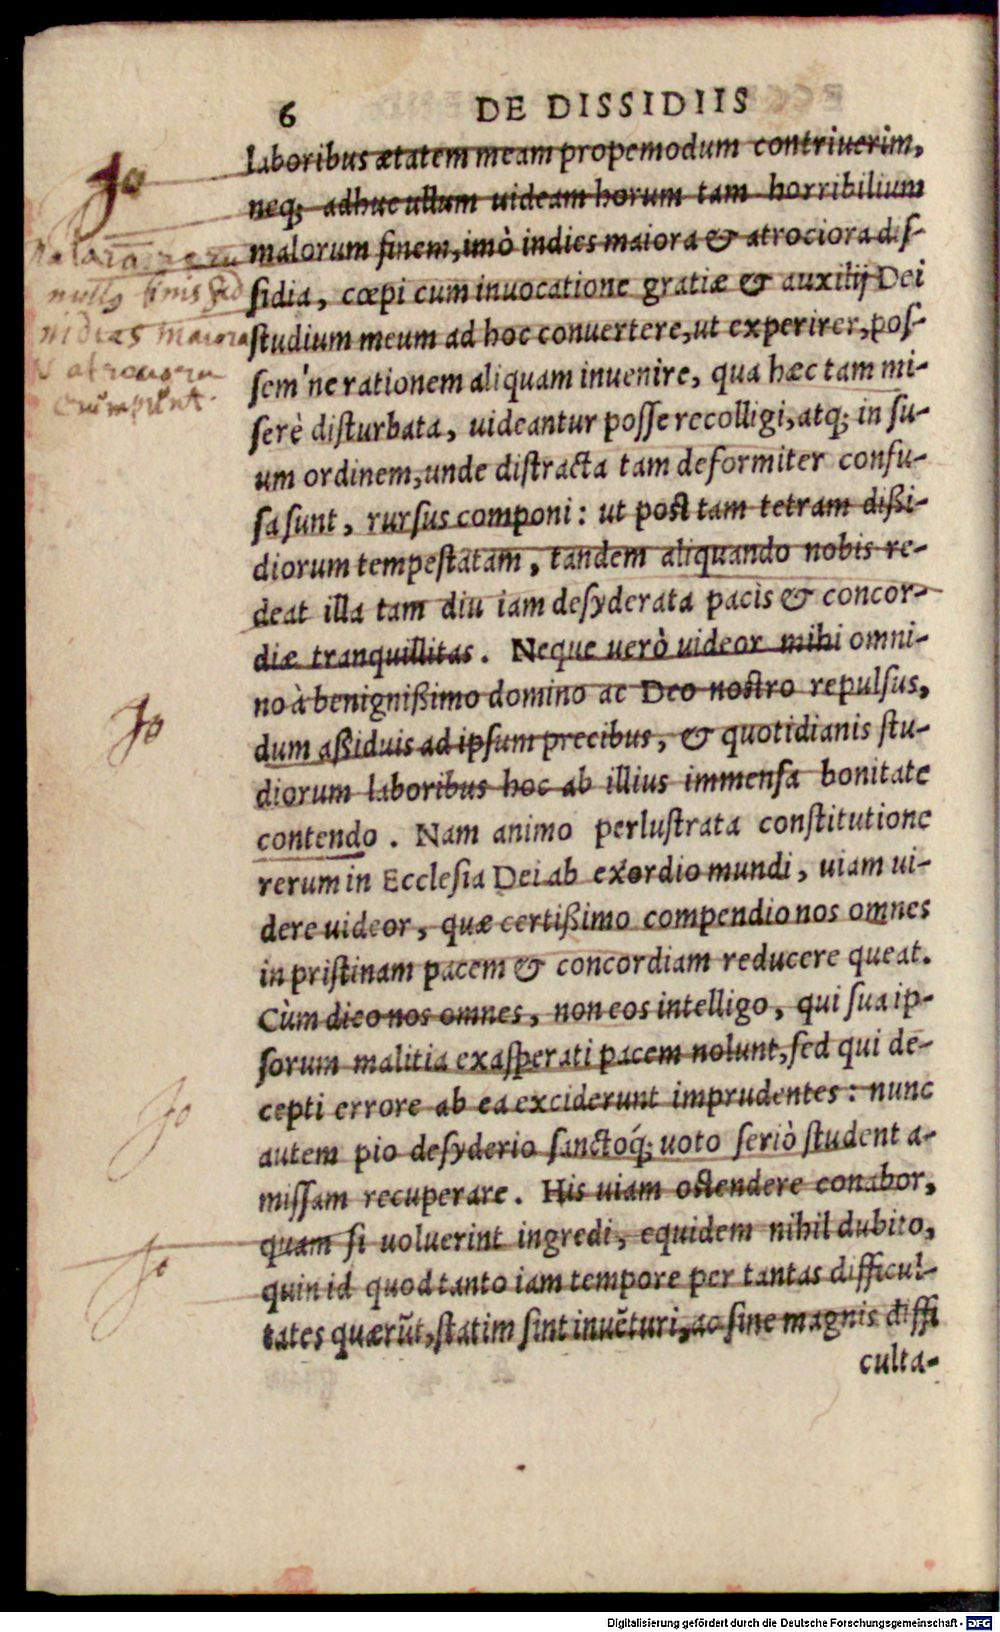 6 DE DISSIDIIS
laboribus ætatem meam propemodum contriuerim,
neq; adhuc ullum uideam horum tam horribilium
malorum finem, imò indies maiora & atrociora dis-
sidia, cœpi cum inuocatione gratiæ & auxilij Dei
studium meum ad hoc conuertere, ut experirer, pos-
sem'ne rationem aliquam inuenire, qua hæc tam mi-
serè disturbata, uideantur posse recolligi, atq; in su-
um ordinem, unde distracta tam deformiter confu-
sa sunt, rursus componi: ut post tam tetram dißi-
diorum tempestatam, tandem aliquando nobis re-
deat illa tam diu iam desyderata pacis & concor-
diæ tranquillitas. Neque uerò uideor mihi omni-
no à benignißimo domino ac Deo nostro repulsus,
dum aßiduis ad ipsum precibus, & quotidianis stu-
diorum laboribus hoc ab illius immensa bonitate
contendo. Nam animo perlustrata constitutione
rerum in Ecclesia Dei ab exordio mundi, uiam ui-
dere uideor, quæ certißimo compendio nos omnes
in pristinam pacem & concordiam reducere queat.
Cùm dico nos omnes, non eos intelligo, qui sua ip-
sorum malitia exasperati pacem nolunt, sed qui de-
cepti errore ab ea exciderunt imprudentes: nunc
autem pio desyderio sanctoq́; uoto seriò student a-
missam recuperare. His uiam ostendere conabor,
quam si uoluerint ingredi, equidem nihil dubito,
quin id quod tanto iam tempore per tantas difficul-
tates quærũt, statim sint inuẽturi, ac sine magnis diffi
culta-
nullus finis sed
indies maiora
& atrociora
erumpunt.
Digitalisierung gefördert durch die Deutsche Forschungsgemeinschaft - DFG